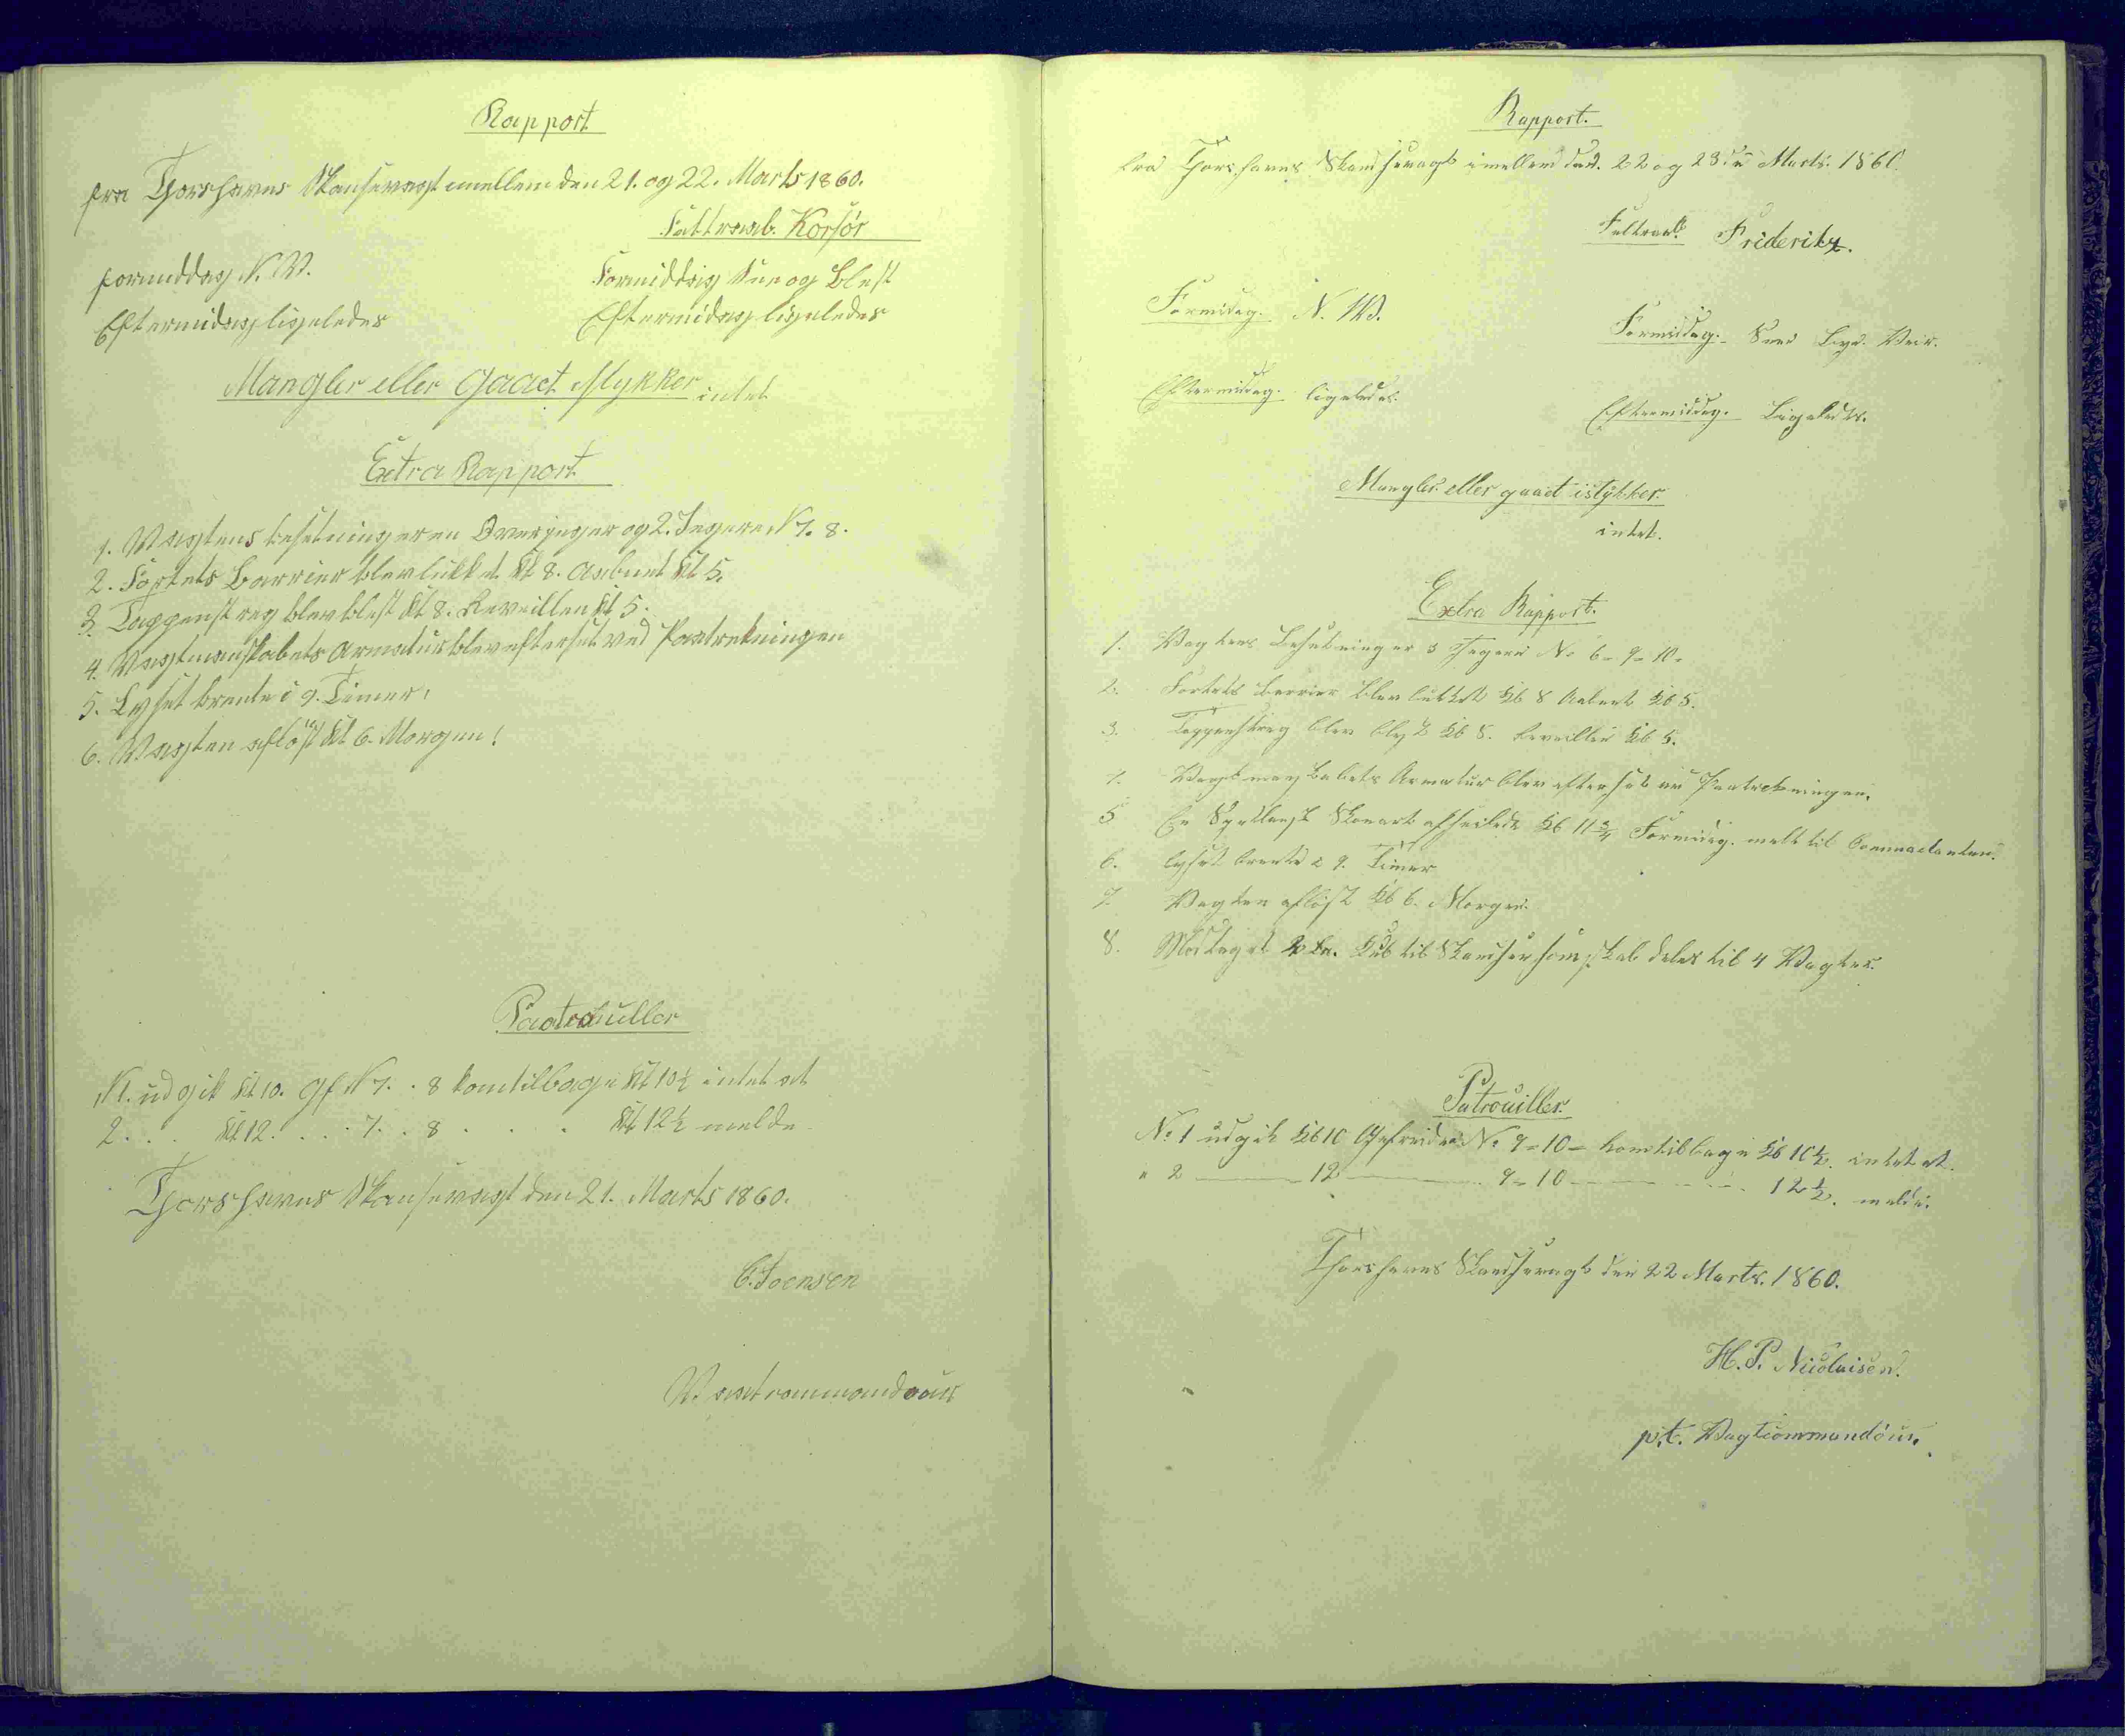 Rapport
fra Thorshavns Skansevagt imellem den 21. og 22. Marts 1860.
Feltraab. Korsör
formiddag N.W.
Formiddag Snee og Blest
Eftermidag ligeledes
Eftermidag ligeledes
Mangler eller gaaet i stykker intet
Extra Rapport
1. Vagtens besetning er en Overjeger og 2. Jegere N 7. 8.
2. Fortets Barrier blev lukket Kl 8. Aabnet Kl 5.
3. Tappenstreg blev blest Kl 8. Reveillen Kl 5.
4. Vagtmanskabets Armatur blev efterset ved Paatrekningen
5. Lyset brente i 9. Timer.
6. Vagten aflöst Kl 6. Morgen!
Paatrouller
N 1. udgik Kl 10. Gf N 7. . 8 kom tilbage Kl 10½ intet at
2 . . . Kl 12. . . . 7. . 8 . . . . Kl 12½ melde.
Thorshavns Skansevagt den 21. Marts 1860.
C. Joensen
Vagtcommandeur
Rapport.
fra Thorshavns Skandsevagt imellem den. 22 og 23de Marts. 1860.
Feltraab. Friderits.
Formidag. N. W.
Formiddag. Snee Veir.
Eftermidag. ligeledes.
Eftermiddag. Ligeledes.
Mangler eller gaaet istykker.
intet.
Extra Rapport.
1. Vagtens Besetning er 3 Jegere No 6 = 9 = 10 =
2. Fortets Barrier blev lukket Kl 8 Aabent Kl 5.
3. Tappenstreg blev blest Kl 8. Reveillen Kl 5.
4. Vagtmanskabets Armatur blev efterset ved Paatrekningen.
5 En Skonert afseilede Kl 11¾ Formidag. melt til Commandanten.
6. Lyset brente i 9. Timer
7. Vagten aflöst Kl 6. Morgen.
8. Modtaget 2 til Skandsen som skal deles til 4 Vagter.
Patrouiller.
No 1 udgik Kl 10 Gefreider No 9 = 10 = kom tilbage Kl 10½. intet at
" 2 —— 12 —— 9 = 10 —— 12½. melde.
Thorshavns Skandsevagt den 22 Marts. 1860.
H. P. Nicolaisen.
p.t. Vagtcommandeur.